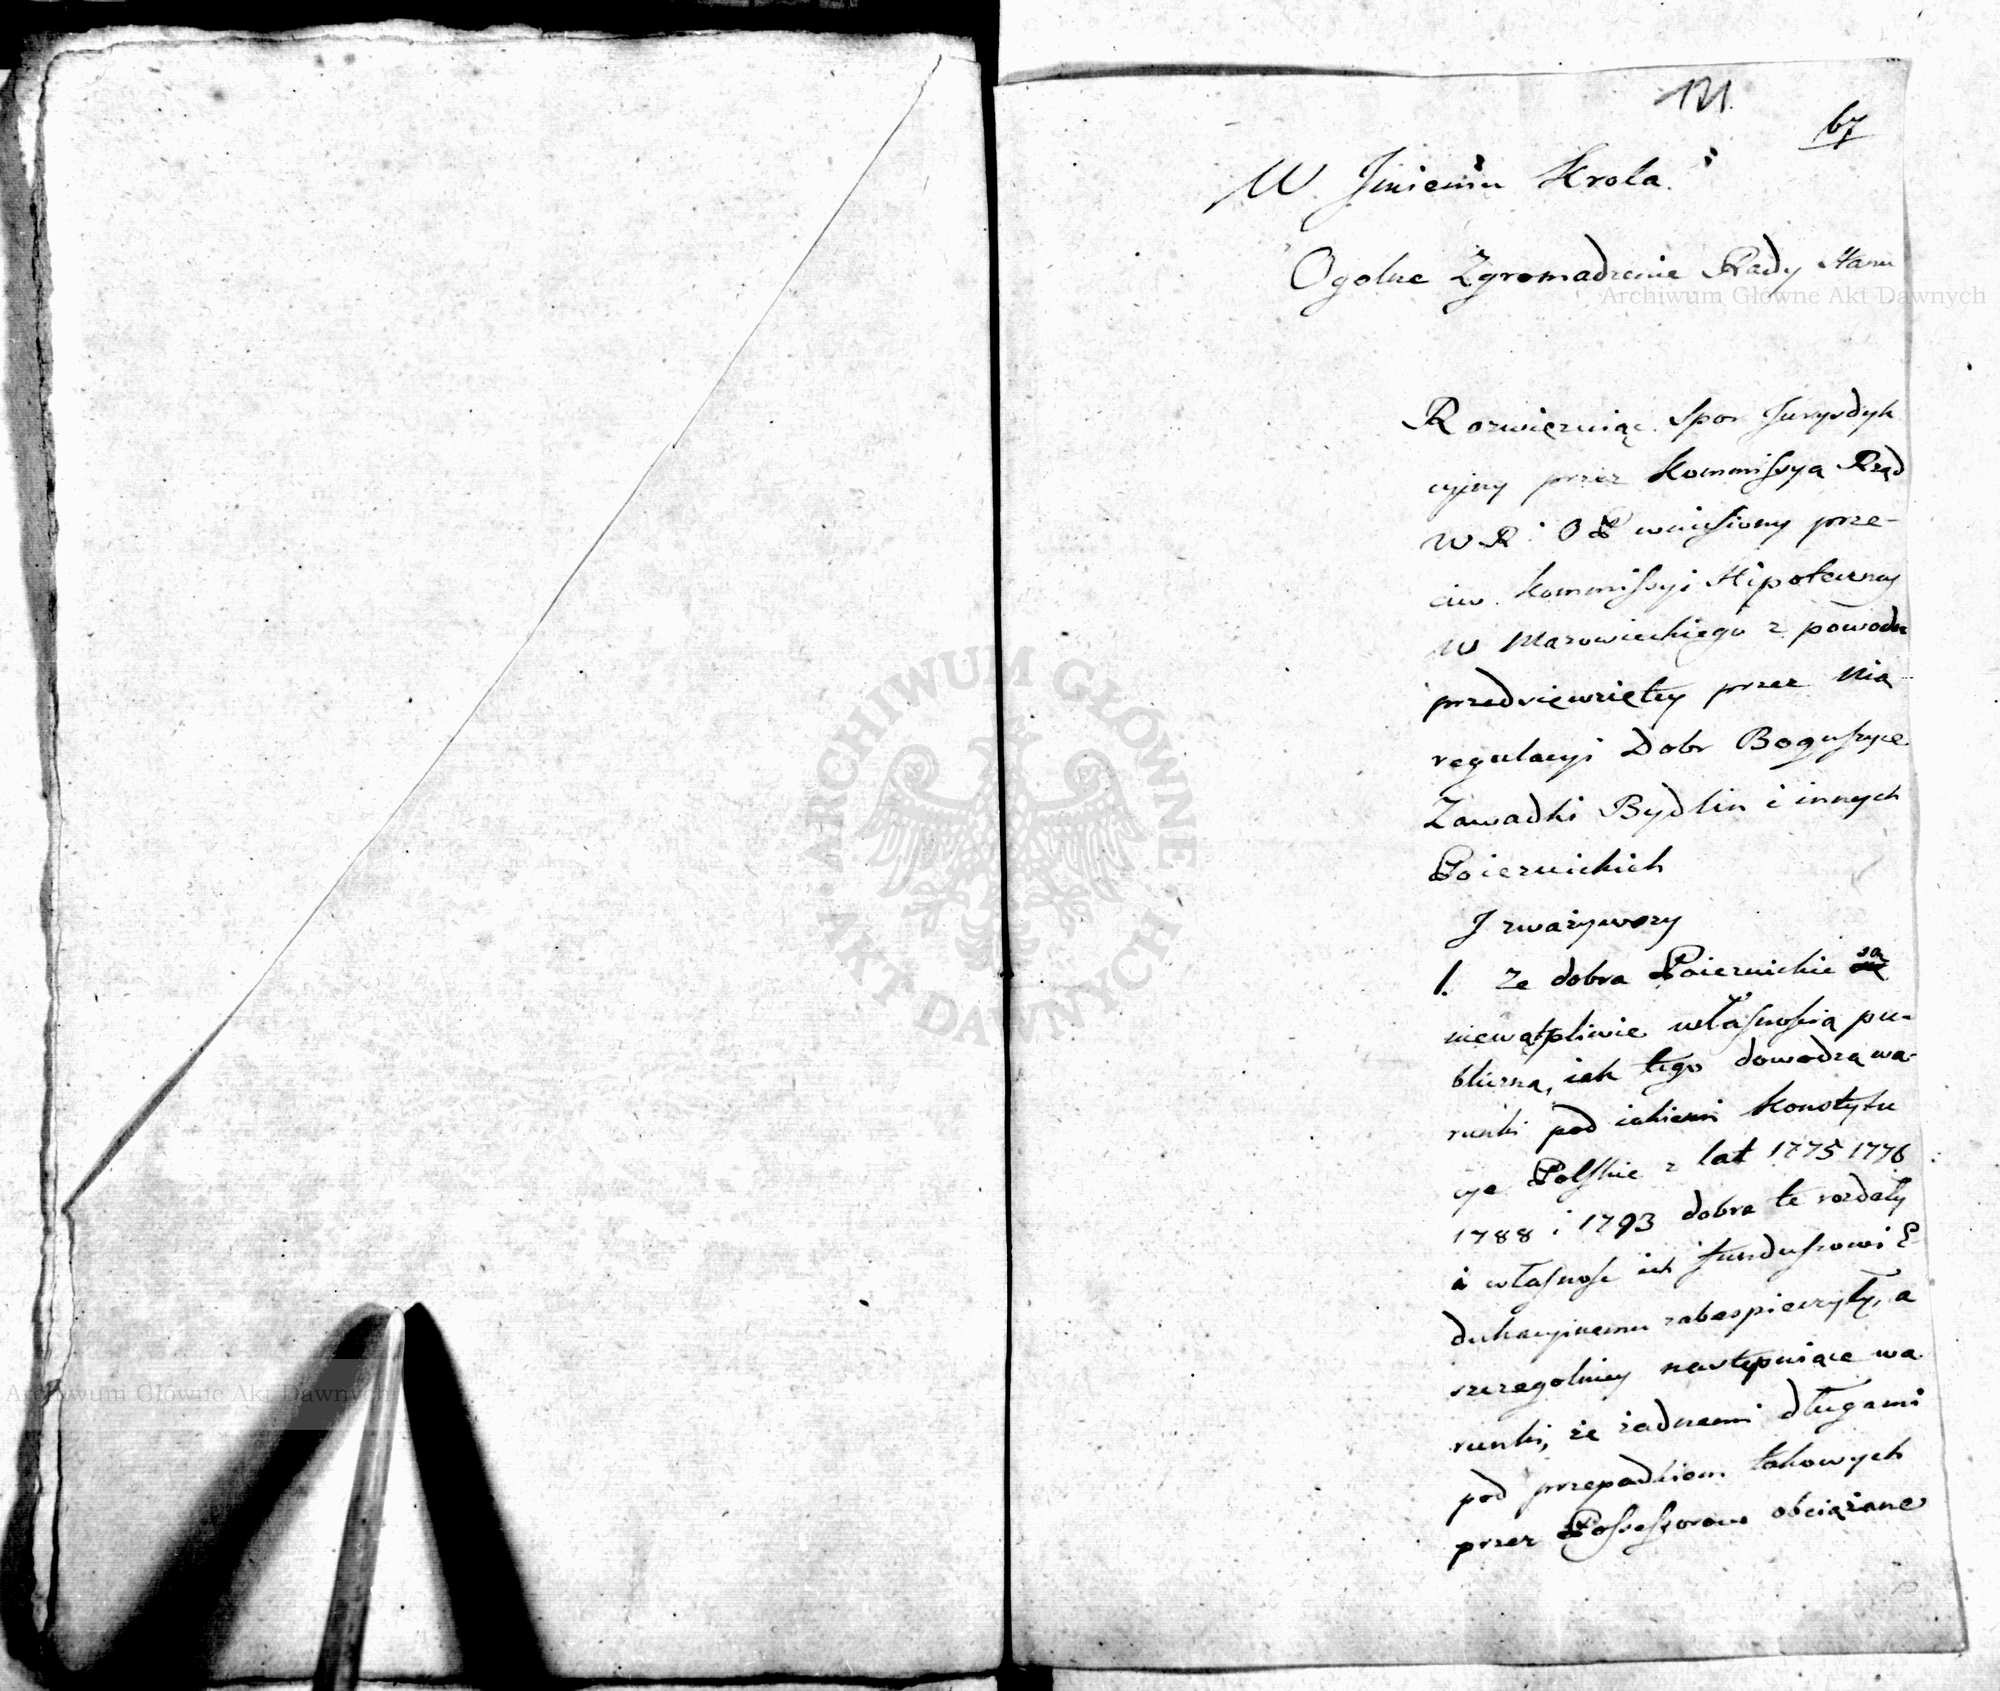 121.
67
W Jmieniu Krola.
Ogolne Zgromadzenie Rady Stanu
Archiwum Główne Akt Dawnych
Rozwiązuiąc Spor Jurysdyk
cyjny przez Kommissyą Rząd
W R i O P wniesiony prze-
ciw Kommissyi Hipoteczney
W Mazowieckiego z powodu
przedsięwziętey przez Nią
regulacyi Dobr Boguszyce
Zawadki Bydlin i innych
Poiezuickich
J zważywszy
1. Ze dobra Poiezuickie są
niewątpliwie własnością pu-
bliczną, iak tego dowodzą wa-
runki pod iakiemi Konstytu
cye Polskie z lat 1775 1776
1788 i 1793 dobra te rozdały
i własność ich funduszowi E
dukacyinemu zabespieczyły, a
szczegolniey następuiące wa
runki, że żadnemi długami
pod przepadkiem takowych
przez Possessorow obciążane
ARCHIWUM GŁÓWNE
• AKT DAWNYCH •
Archiwum Główne Akt Dawnych